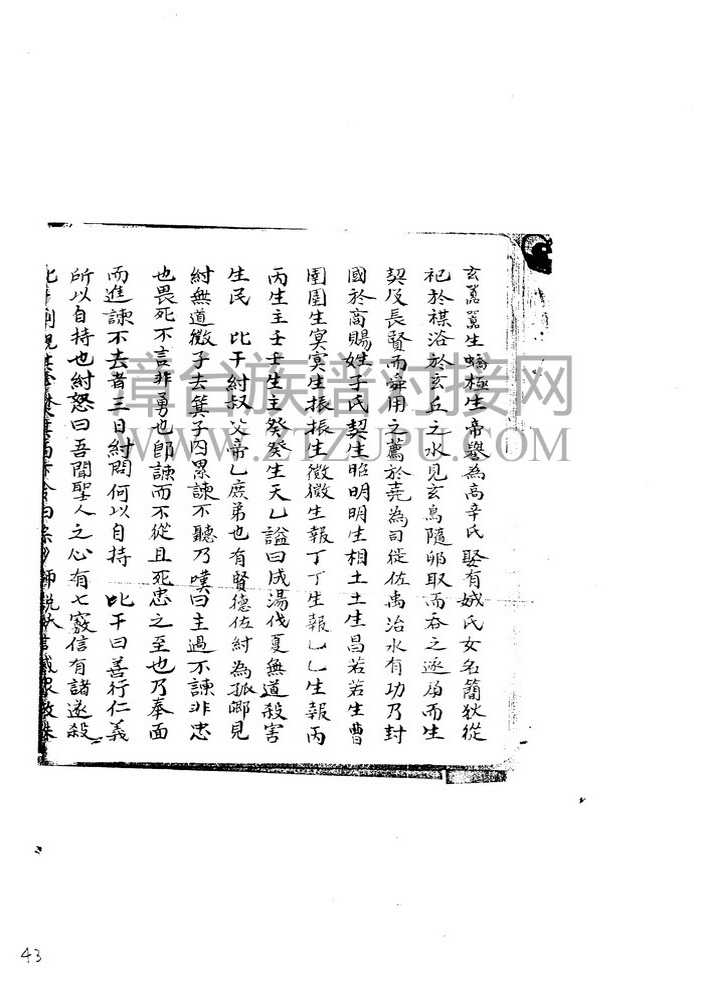 玄囂囂生蟜極生帝嚳為高辛氏娶有娀氏女名簡狄從
祀於禖浴於玄丘之水見玄鳥隨卵取而吞之遂孕而生
契及長賢而舜用之薦於堯為司徒佐禹治水有功乃封
國於商賜姓子氏契生昭明明生相土土生昌若若生曹
圉圉生冥冥生振振生微微生報丁丁生報乙乙生報丙
丙生主壬壬生主癸癸生天乙諡曰成湯伐夏無道殺害
生民 比干紂叔父帝乙庶弟也有賢德佐紂為孤卿見
紂無道微子去箕子囚累諫不聽乃嘆曰主過不諫非忠
也畏死不言非勇也即諫而不從且死忠之至也乃奉面
而進諫不去者三日紂問何以自持 比干曰善行仁義
所以自持也紂怒曰吾聞聖人之心有七竅信有諸遂殺
章台族普对接网
WWW.ZTZUPU.COM
43